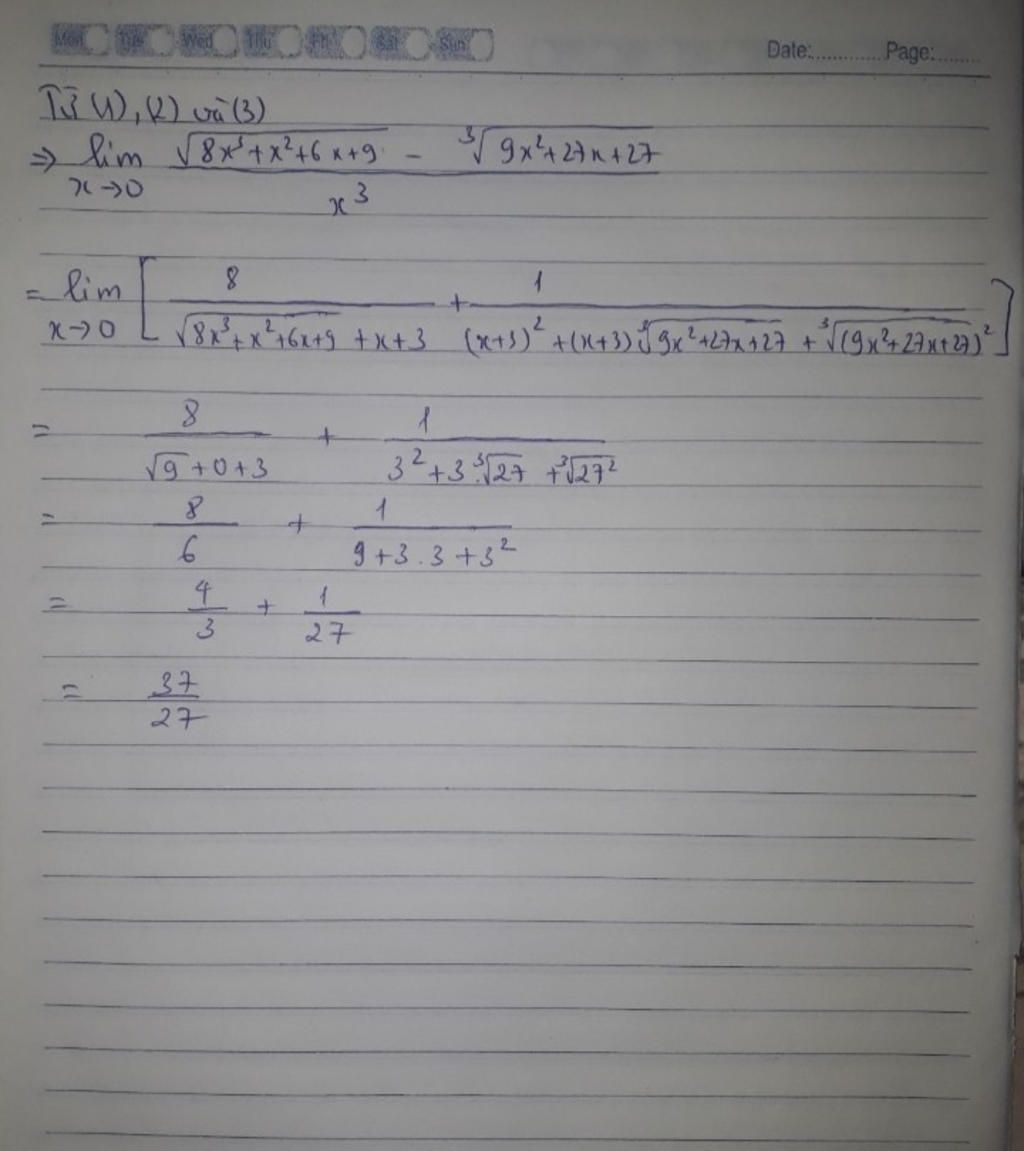 Mon Tue Wed Thu Fri Sat Sun Date:............ Page:.........
Từ (1), (2) và (3)
⇒ lim x→0 (√(8x³+x²+6x+9) - ∛(9x²+27x+27)) / x³
= lim x→0 [ 8 / (√(8x³+x²+6x+9) + x+3) + 1 / ((x+3)² + (x+3)∛(9x²+27x+27) + ∛((9x²+27x+27)²)) ]
= 8 / (√9+0+3) + 1 / (3²+3.∛27 + ∛27²)
= 8/6 + 1 / (9+3.3+3²)
= 4/3 + 1/27
= 37/27